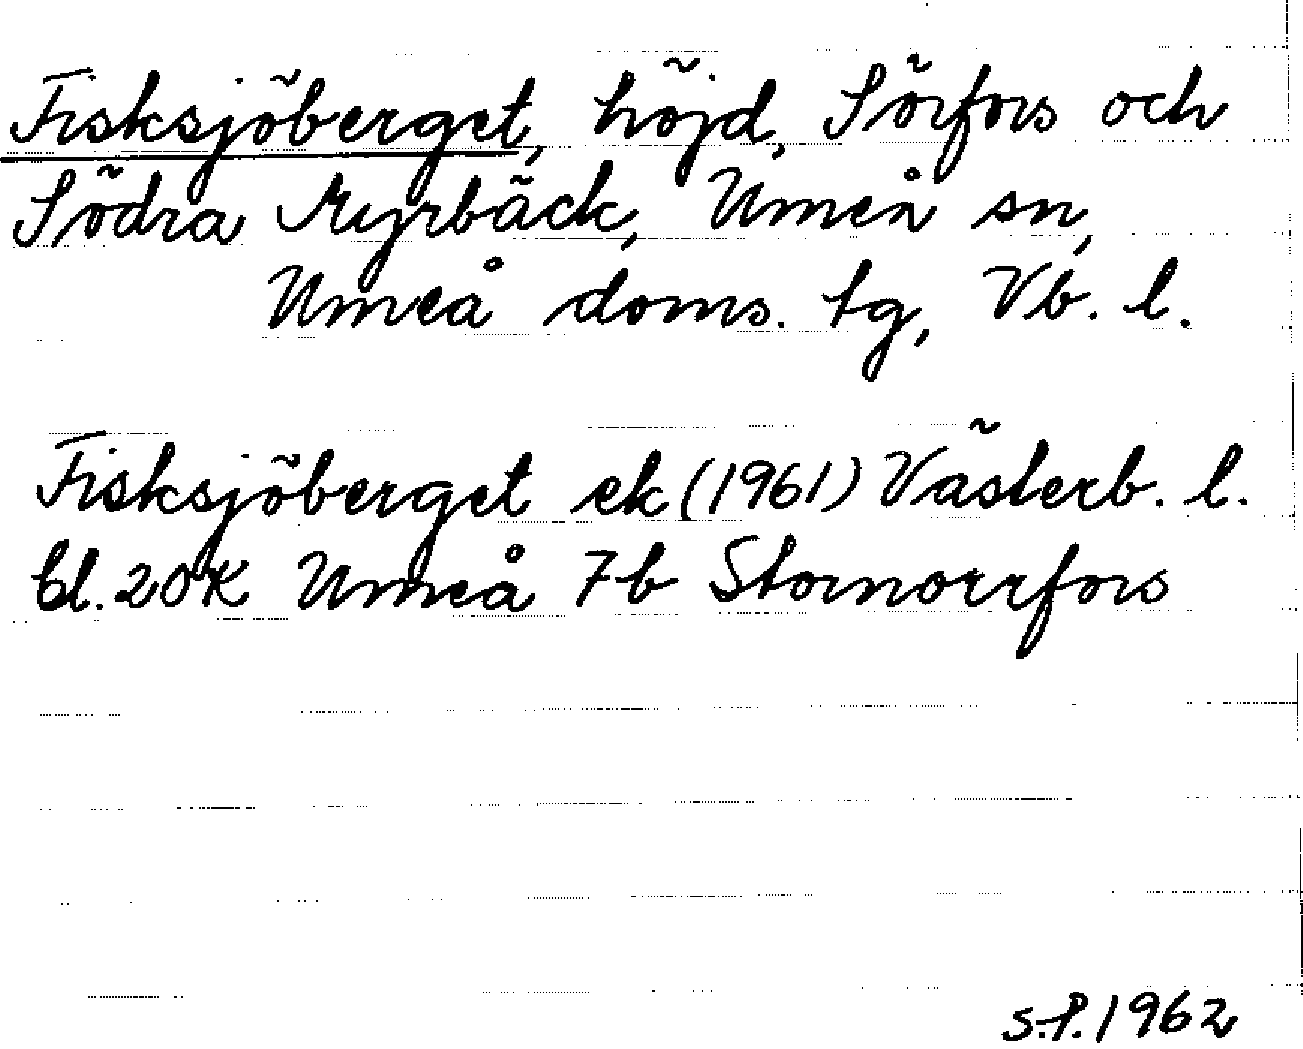 Fisksjöberget, höjd, Sörfors och
Södra Myrbäck, Umeå sn,
Umeå doms. tg, Vb. l.
Fisksjöberget ek (1961) Västerb. l.
bl. 20K Umeå 7b Stornorrfors
S.P. 1962